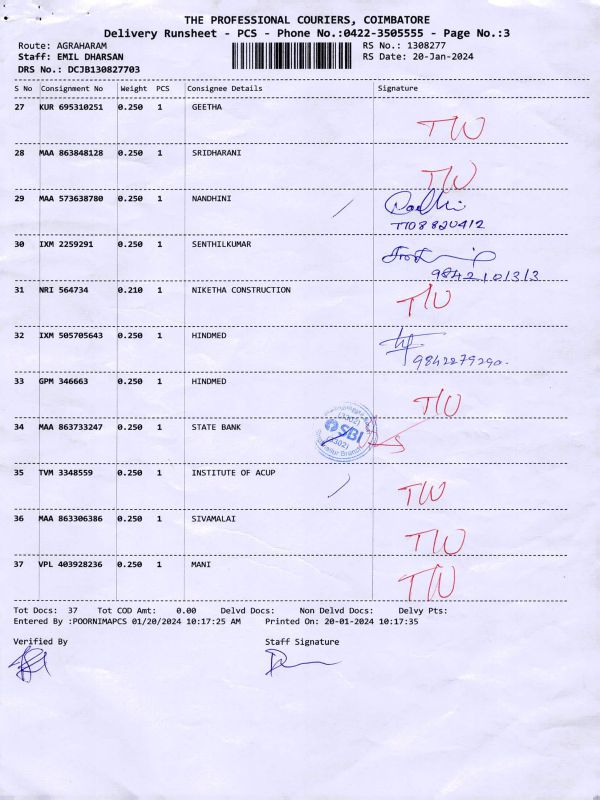 THE PROFESSIONAL COURIERS, COIMBATORE
Delivery Runsheet - PCS - Phone No.:0422-3505555 - Page No.:3
Route: AGRAHARAM RS No.: 1308277
Staff: EMIL DHARSAN RS Date: 20-Jan-2024
DRS No.: DCJB130827703
S No Consignment No Weight PCS Consignee Details Signature
27 KUR 695310251 0.250 1 GEETHA
T/U
28 MAA 863848128 0.250 1 SRIDHARANI
T/U
29 MAA 573638780 0.250 1 NANDHINI
30 IXM 2259291 0.250 1 SENTHILKUMAR
9842101313
31 NRI 564734 0.210 1 NIKETHA CONSTRUCTION
T/U
32 IXM 505705643 0.250 1 HINDMED
9842279290.
33 GPM 346663 0.250 1 HINDMED
T/U
34 MAA 863733247 0.250 1 STATE BANK
(3302)
SBI
35 TVM 3348559 0.250 1 INSTITUTE OF ACUP
T/U
36 MAA 863306386 0.250 1 SIVAMALAI
T/U
37 VPL 403928236 0.250 1 MANI
T/U
Tot Docs: 37 Tot COD Amt: 0.00 Delvd Docs: Non Delvd Docs: Delvy Pts:
Entered By :POORNIMAPCS 01/20/2024 10:17:25 AM Printed On: 20-01-2024 10:17:35
Verified By Staff Signature